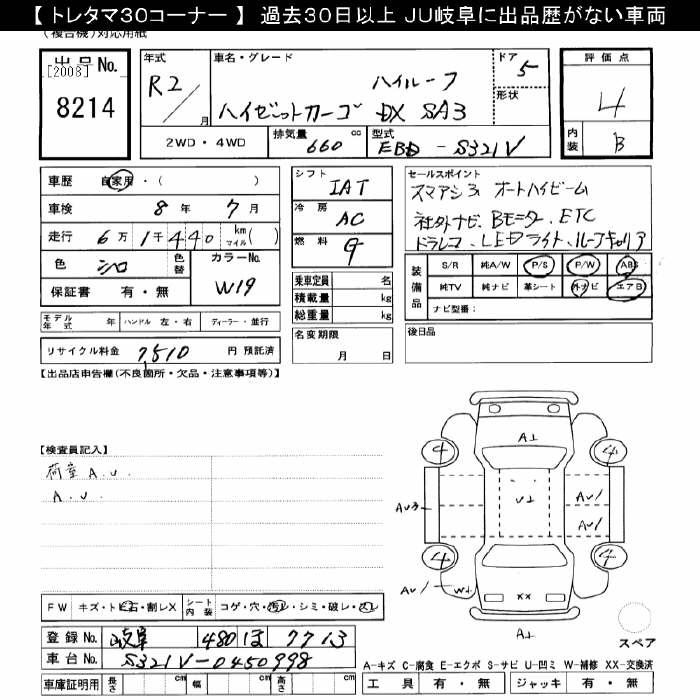 【 トレタマ30コーナー 】 過去30日以上 JU岐阜に出品歴がない車両
(複合機)対応用紙
出品No.
[2008]
8214
年式 R2 / 月
車名・グレード
ハイルーフ
ハイゼットカーゴ DX SA3
ドア 5
形状
評価点
4
内装 B
2WD・4WD
排気量 660 cc
型式 EBD-S321V
車歴 自家用・( )
車検 8年 7月
走行 6万1千440 km マイル( )
色 シロ 色替
カラーNo. W19
保証書 有・無
モデル年式 年 ハンドル 左・右 ディーラー・並行
リサイクル料金 7510 円 預託済
シフト IAT
冷房 AC
燃料 G
乗車定員 名
積載量 kg
総重量 kg
名変期限
月 日
セールスポイント
スマアシ3 オートハイビーム
社外ナビ、Bモニター、ETC
ドラレコ、LEDライト、ルーフキャリア
装備品
S/R 純A/W P/S P/W ABS
純TV 純ナビ 革シート 外ナビ エアB
ナビ型番:
後日品
【出品店申告欄(不良箇所・欠品・注意事項等)】
【検査員記入】
荷室A.U.
A.U.
A⊥
4 4
U⊥
AU3
AU1
AU1
4 4
AU1 W⊥
XX
A⊥
スペア
FW キズ・トビ石・割レX シート内装 コゲ・穴・汚レ・シミ・破レ・スレ
登録No. 岐阜 480 ほ 7713
車台No. S321V-0450998
車庫証明用 長さ cm 幅 cm 高さ cm
A-キズ C-腐食 E-エクボ S-サビ U-凹ミ W-補修 XX-交換済
工具 有・無 ジャッキ 有・無